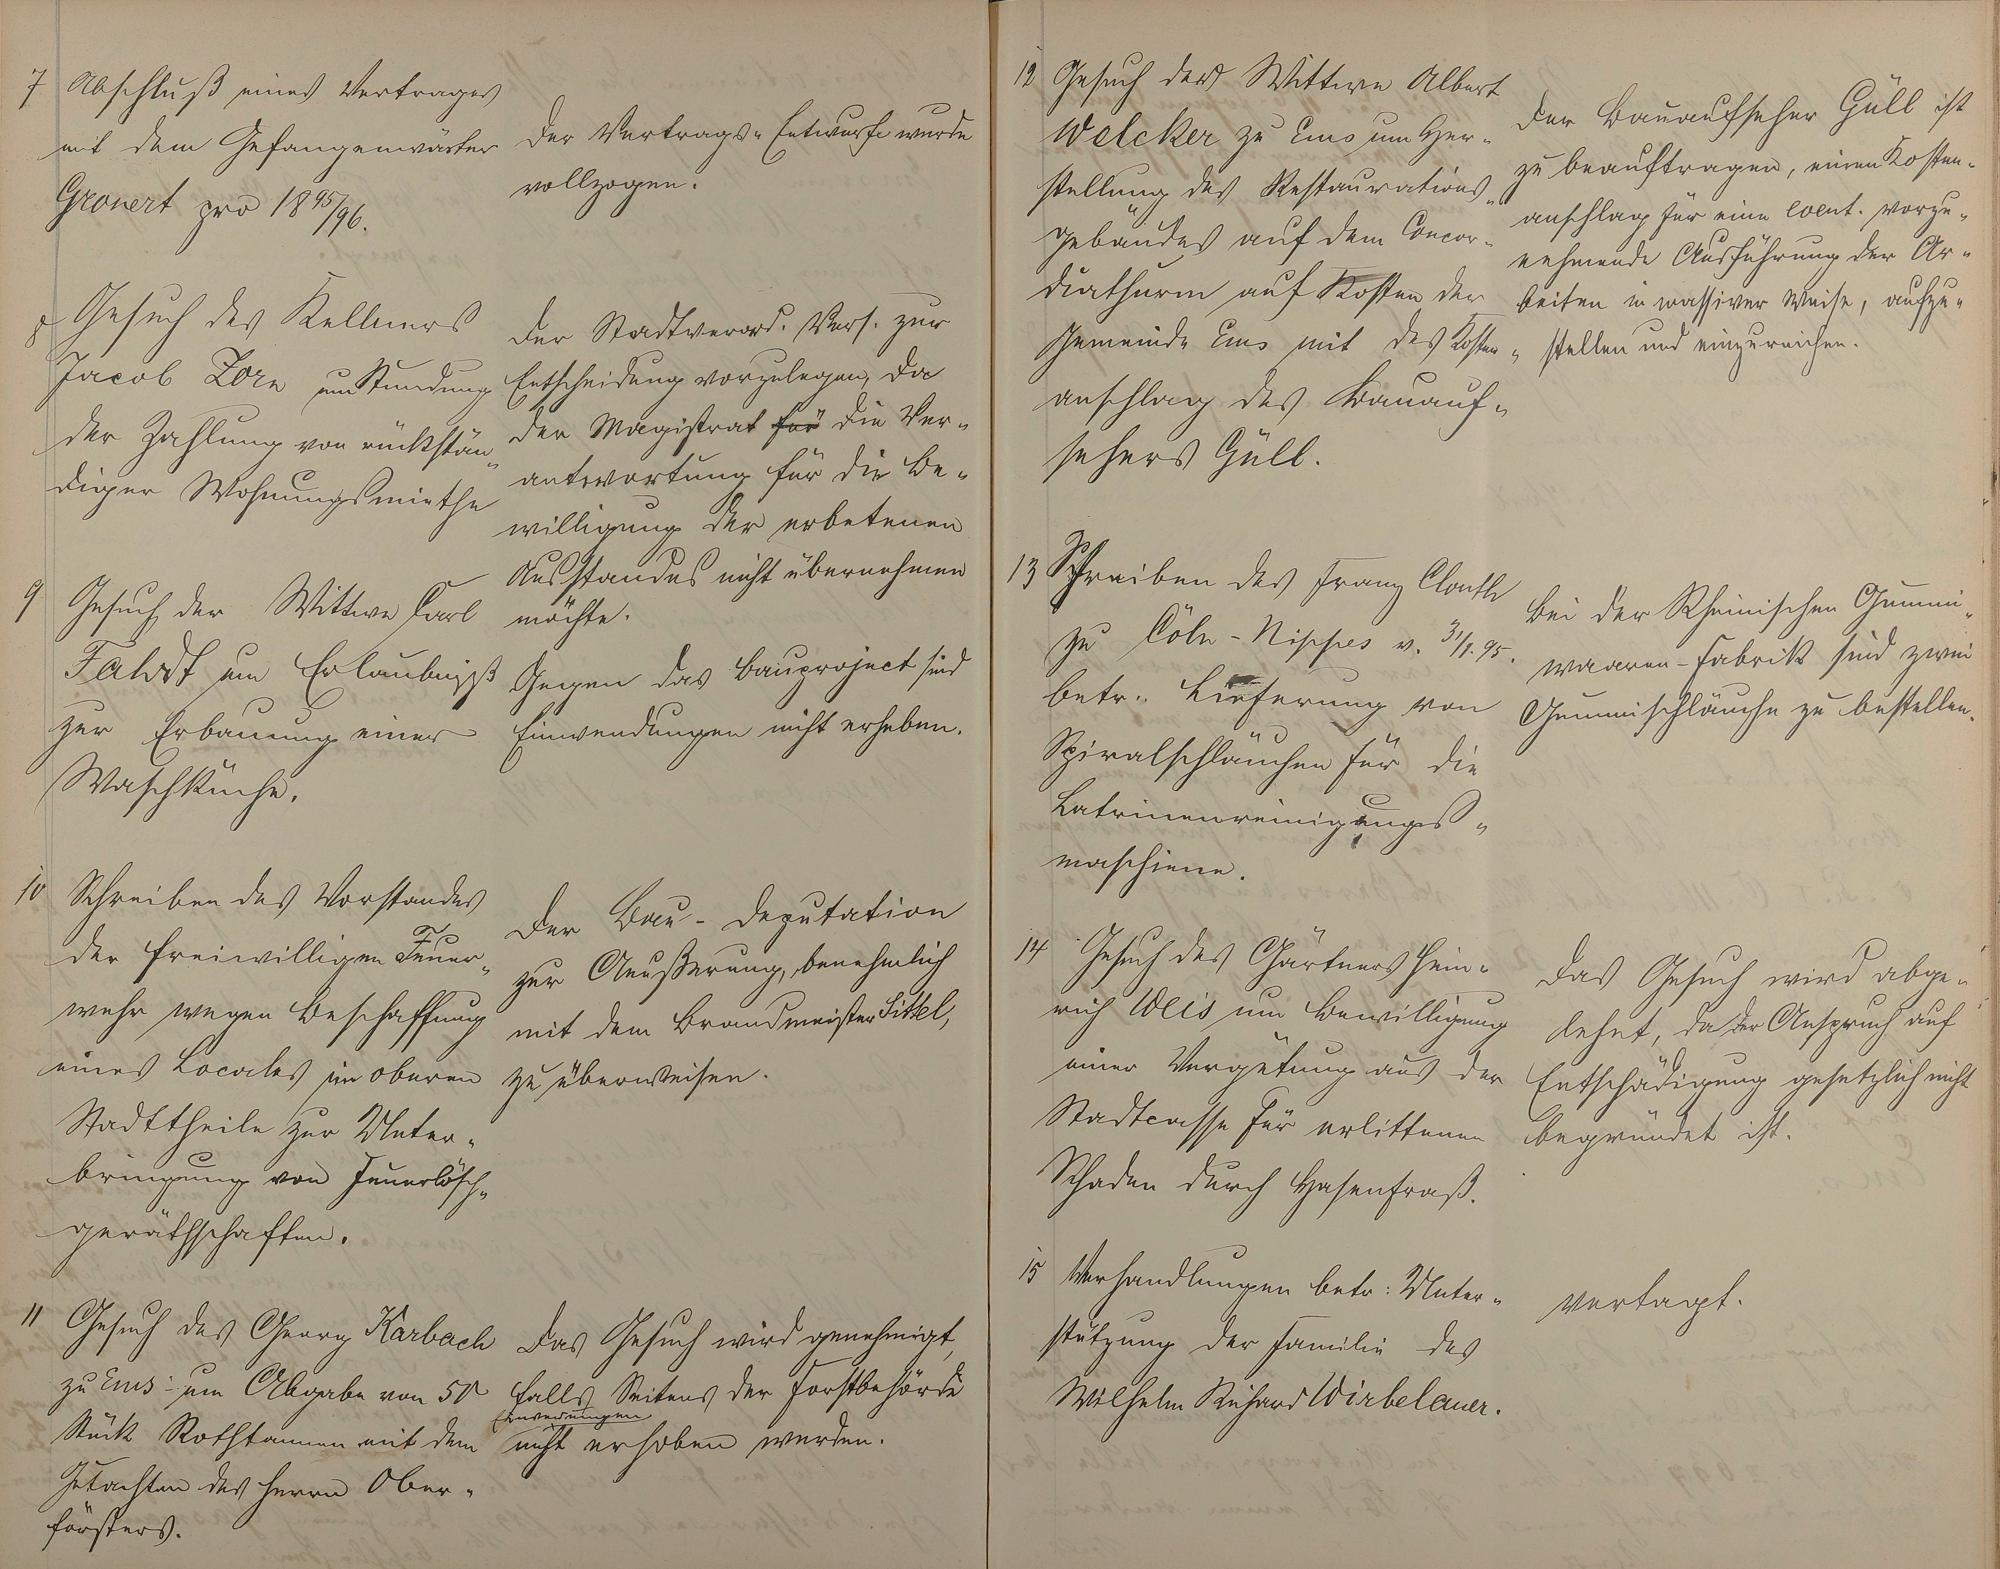 7 Abschluß eines Vertrages
mit dem Gefangenwärter
Gronert pro 1895/96.
Der Vertrags-Entwurf wurde
vollzogen.
8 Gesuch des Kellners
Jacob Zorn um Stundung
der Zahlung von rückstän-
diger Wohnungsmiethe
Der Stadtverord. Vers. zur
Entscheidung vorzulegen, da
der Magistrat für die Ver-
antwortung für die Be-
willigung der erbetenen
Ausstandes nicht übernehmen
möchte.
9 Gesuch der Wittwe Carl
Faldt um Erlaubniß
zur Erbauung einer
Waschküche.
Gegen das Bauproject sind
Einwendungen nicht erheben.
10 Schreiben des Vorstandes
der freiwilligen Feuer-
wehr wegen Beschaffung
eines Locales im oberen
Stadttheile zur Unter-
bringung von Feuerlösch-
geräthschaften.
Der Bau-Deputation
zur Aeußerung, benehmlich
mit dem Brandmeister Sittel,
zu überweisen.
11 Gesuch des Georg Karbach
zu Ems um Abgabe von 50
Stück Rothtannen mit dem
Gutachten des Herrn Ober-
försters.
Das Gesuch wird genehmigt,
falls Seitens der Forstbehörde
Einwendungen
nicht erhoben werden.
12 Gesuch der Wittwe Albert
Welcker zu Ems um Her-
stellung des Restaurations-
gebäudes auf dem Concor-
diathurm auf Kosten der
Gemeinde Ems mit des Kosten-
anschlag des Bauauf-
sehers Güll.
Der Bauaufseher Güll ist
zu beauftragen, einen Kosten-
anschlag für eine event. vorzu-
nehmende Ausführung der Ar-
beiten in massiver Weise, aufzu-
stellen und einzureichen.
13 Schreiben des Franz Clouth
zu Cöln-Nippes v. 31/1. 95.
betr. Lieferung von
Spiralschläuchen für die
Latrinenreinigungs-
maschiene.
Bei der Rheinischen Gummi-
waaren-Fabrik sind zwei
Gummischläuche zu bestellen.
14 Gesuch des Gärtners Hein-
rich Weis um Bewilligung
einer Vergütung aus der
Stadtcasse für erlittenen
Schaden durch Hasenfraß.
Das Gesuch wird abge-
lehnt, da der Anspruch auf
Entschädigung gesetzlich nicht
begründet ist.
15 Verhandlungen betr: Unter-
stützung der Familie des
Wilhelm Richard Wirbelauer.
vertagt.